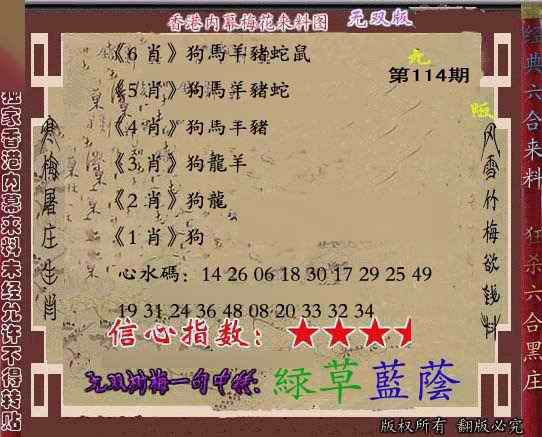 香港内幕梅花来料图 无双版
《6 肖》狗馬羊豬蛇鼠
第114期
《5 肖》狗馬羊豬蛇
《4 肖》狗馬羊豬
《3 肖》狗龍羊
《2 肖》狗龍
《1 肖》狗
心水碼：14 26 06 18 30 17 29 25 49
19 31 24 36 48 08 20 33 32 34
信心指数：
句中特：綠草藍蔭
版权所有 翻版必究
独家香港内幕来料未经允许不得转贴
寒梅屠庄生肖
风雪竹梅欲钱料
经典六合来料
狂杀六合黑庄